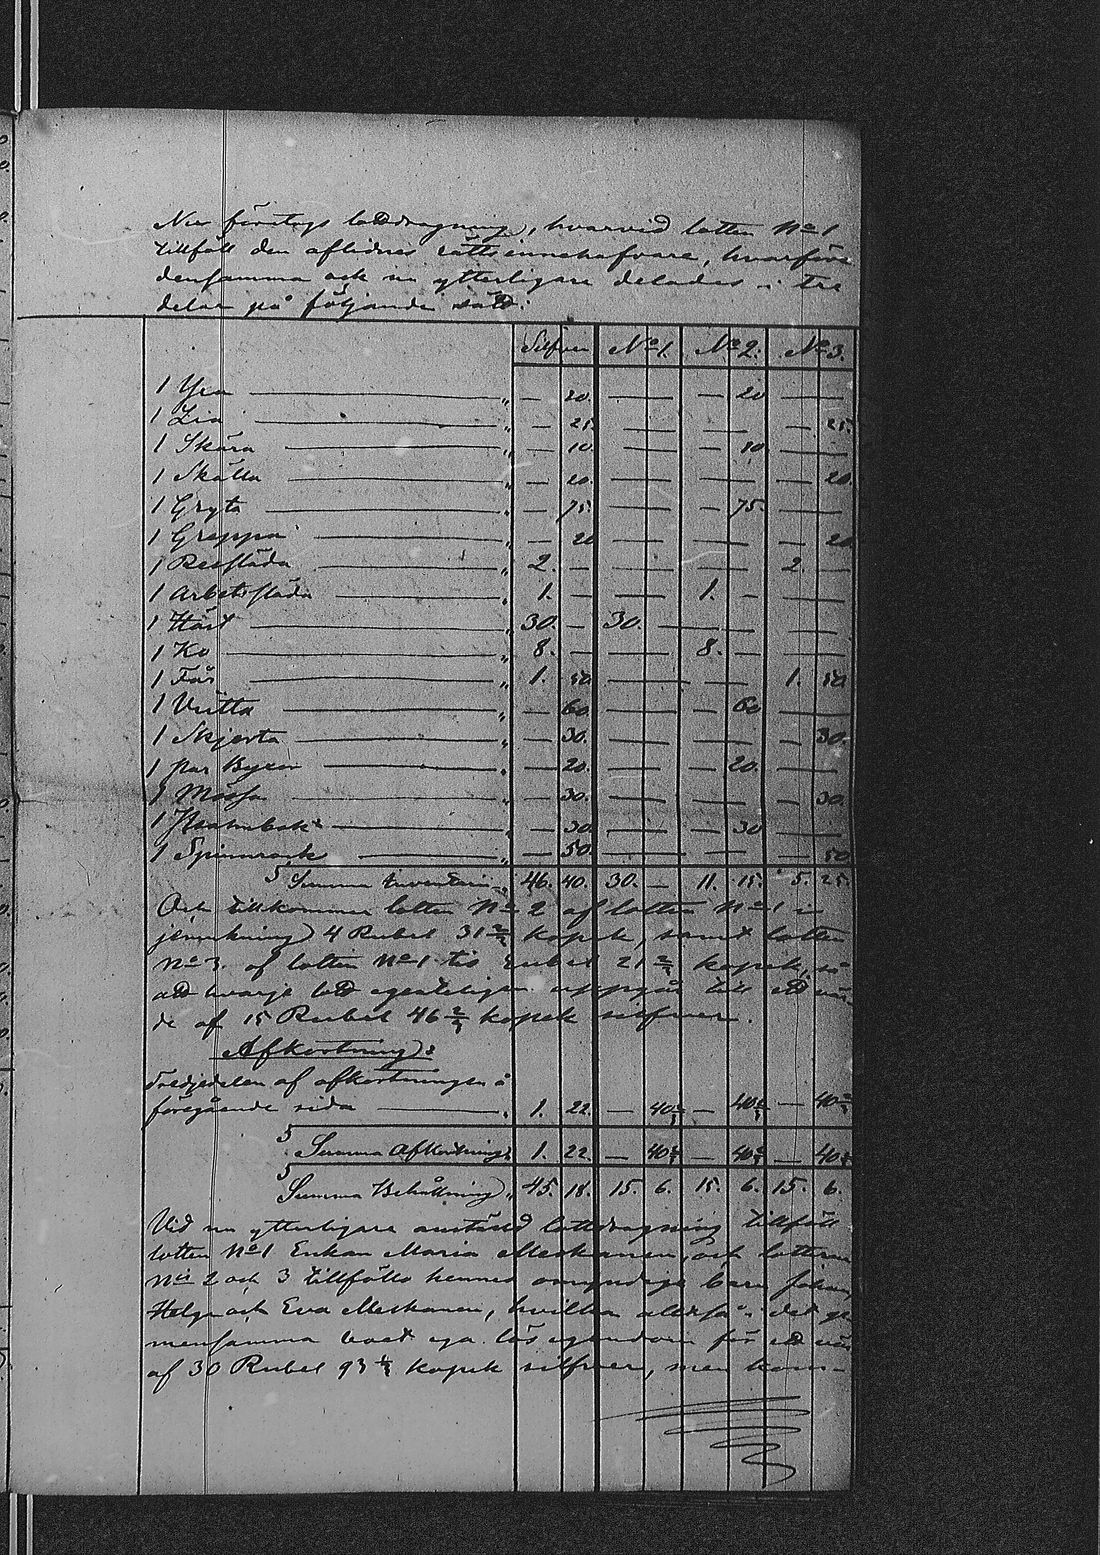 Nu företogs lottdragning, hvarvid lotten No 1
tillföll den aflidnes rättsinnehafvare, hvarföre
densamma och nu ytterligare delades i tre
delar på följande sätt:
Silfver No 1. No 2. No 3.
1 Yxa — „ — 20. — — 20 —
1 Lia — „ — 25. — — — 25.
1 Skära — „ — 10. — — 10 —
1 Skälla — „ — 20. — — — 20
1 Gryta — „ — 75. — — 75. —
1 Grappa — „ — 20 — — — 20
1 Resesläda — „ 2. — — — 2. —
1 Arbetssläda — „ 1. — — 1. — —
1 Häst — „ 30. — 30. — — —
1 Ko — „ 8. — — 8. — —
1 Får — „ 1. 50 — — 1. 50
1 — „ — 60. — — 60 —
1 Skjorta — „ — 30. — — — 30.
1 par Byxor — „ — 20. — — 20. —
1 Mössa — „ — 30. — — — 30
1 — „ — 30 — — 30 —
1 Spinnrock — „ — 50. — — — 50
S Summa Inventarium „ 46. 40. 30. — 11. 15. 5. 25.
Och tillkommer lotten No 2 af lotten No 1 i
jemkning 4 Rubel 31 2/3 kopek, samt lotten
No 3. af lotten No 1 tio Rubel 21 2/3 kopek, så
att hvarje lott egenteligen uppgår till ett vär-
de af 15 Rubel 46 2/3 kopek silfver.
Afkortning:
Tredjedelen af afkortningen å
föregående sida — „ 1. 22. — 40 2/3 — 40 2/3 — 40 2/3
S Summa Afkortning „ 1. 22. — 40 2/3 — 40 2/3 — 40 2/3
S Summa Behållning „ 45. 18. 15. 6. 15. 6. 15. 6.
Vid nu ytterligare anstäld lottdragning tillföll
lotten No 1 Enkan Maria Meskanen, och lotterne
No 2 och 3 tillföllo hennes omyndige barn Johan
Helge och Eva Meskanen, hvilka alltså i det ge-
mensamma boet ega lös egendom för ett värde
af 30 Rubel 93 1/3 kopek silfver, men kom-